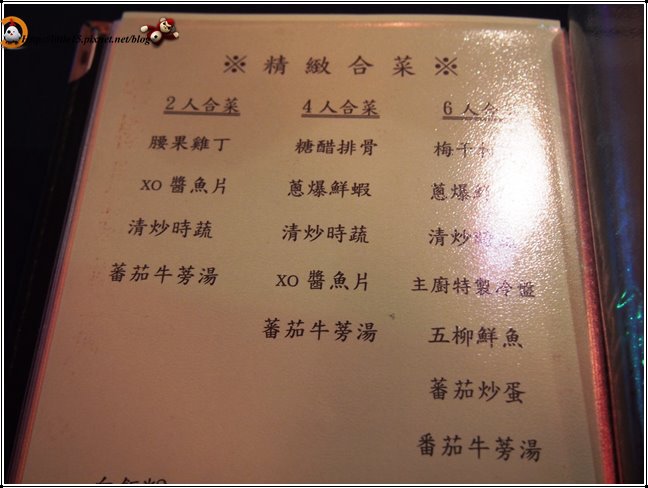 http://little15.pixnet.net/blog
※ 精緻合菜 ※
2人合菜
腰果雞丁
XO 醬魚片
清炒時蔬
蕃茄牛蒡湯
4人合菜
糖醋排骨
蔥爆鮮蝦
清炒時蔬
XO 醬魚片
蕃茄牛蒡湯
6人合
梅干
蔥爆
清炒時蔬
主廚特製冷盤
五柳鮮魚
蕃茄炒蛋
番茄牛蒡湯